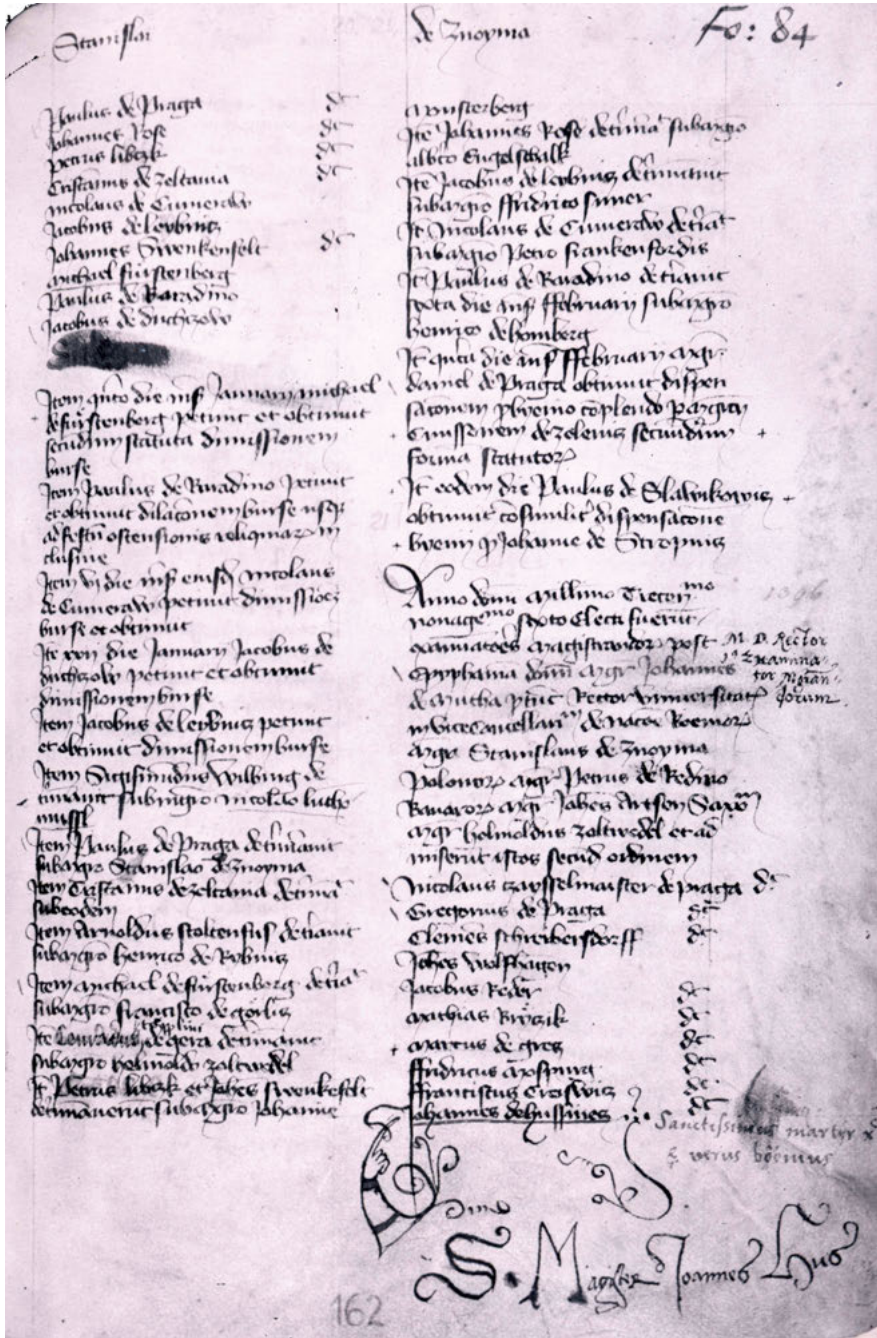 Stanislai de Znoyma Fo: 84
Paulus de Praga dt
Johannes Rose dt
Petrus libczk dt
Cristannus de zeltania dt
Nicolaus de Cumeraw
Jacobus de leybnicz
Johannes Swenkenfelt dt
Michael fürstenberg
Paulus de Raradino
Jacobus de duchczow
Item qinto die mens Januarii michael
de fürstenberg petiuit et obtinuit
secundum statuta dimissionem
burse
Item Paulus de Raradino petiuit
et obtinuit dilaconem burse usqz
ad festum ostensionis reliquiar in
clusiue
Item vi die mens eiusdem Nicolaus
de Cumeraw petiuit dimissioem
burse et obtinuit
Ite die January Jacobus de
duchczow petiuit et obtinuit
dimissionem burse
Item Jacobus de leybnicz petiuit
et obtinuit dimissionem burse
Item Sigismundus Wilbing de
tminauit sub mgro Nicolao
Item Paulus de Praga determinauit
sub mgro Stanislao de Znoyma
Item Cristannus de zeltania determinat
sub eodem
Item Arnoldus stoltensus determinauit
sub mgro henrico de
Item Michael de fürstenberg determinat
sub mgro francisco de gorlicz
Ite de gera determinauit
sub mgro helmoldo zoltwedel
It Petrus libczk et Johes Swenkefelt
determinauerunt sub mgro Johanne
Munsterberg
Ite Johannes Rose determinat sub mgro
alberto Engelschalk
Ite Jacobus de leybnicz determinauit
sub mgro ffridrico
It Nicolaus de Cumeraw determinat
sub mgro Petro frankenfordis
It Paulus de Raradino determinauit
sexta die mens ffebruary sub mgro
henrico de homberg
It die mens ffebruary Mgr
daniel de Praga obtinuit dispen
saconem pro complendo
de zelenicz secundum
forma statutor
It eodem die Paulus de Slawikowicz
obtinuit cosimilit dispensacone
bienii p Johanne de Stropnicz
Anno dom Millimo Trecentmo
nonagemo sexto Electi fuerut
examiatoes Magistrandor post M. D. Rector
Epyphania domi Mgr Johannes Examina-
de Mutha ptunc Rector vniuersitat tor
in Vicecancellarium de nacoe Boemor
Mgr Stanislaus de Znoyma
Polonor Mgr Petrus de Redino
Bauaror Mgr Johes Saxo
Mgr helmoldus zoltwedel et ad
miserut istos secund ordinem
Nicolaus czeysselmaister de praga dt
Gregorius de Praga dt
Clemes schreibersdorff dt
Johes Wolfhagen
Jacobus Reder dt
Mathias dt
Marcus de grecz dt
ffridricus dt
ffranciscus Croswicz dt
Johannes de hussinecz dt
Sanctissimus martyr x
& verus böemus
S. Magister Joannes Hus
162